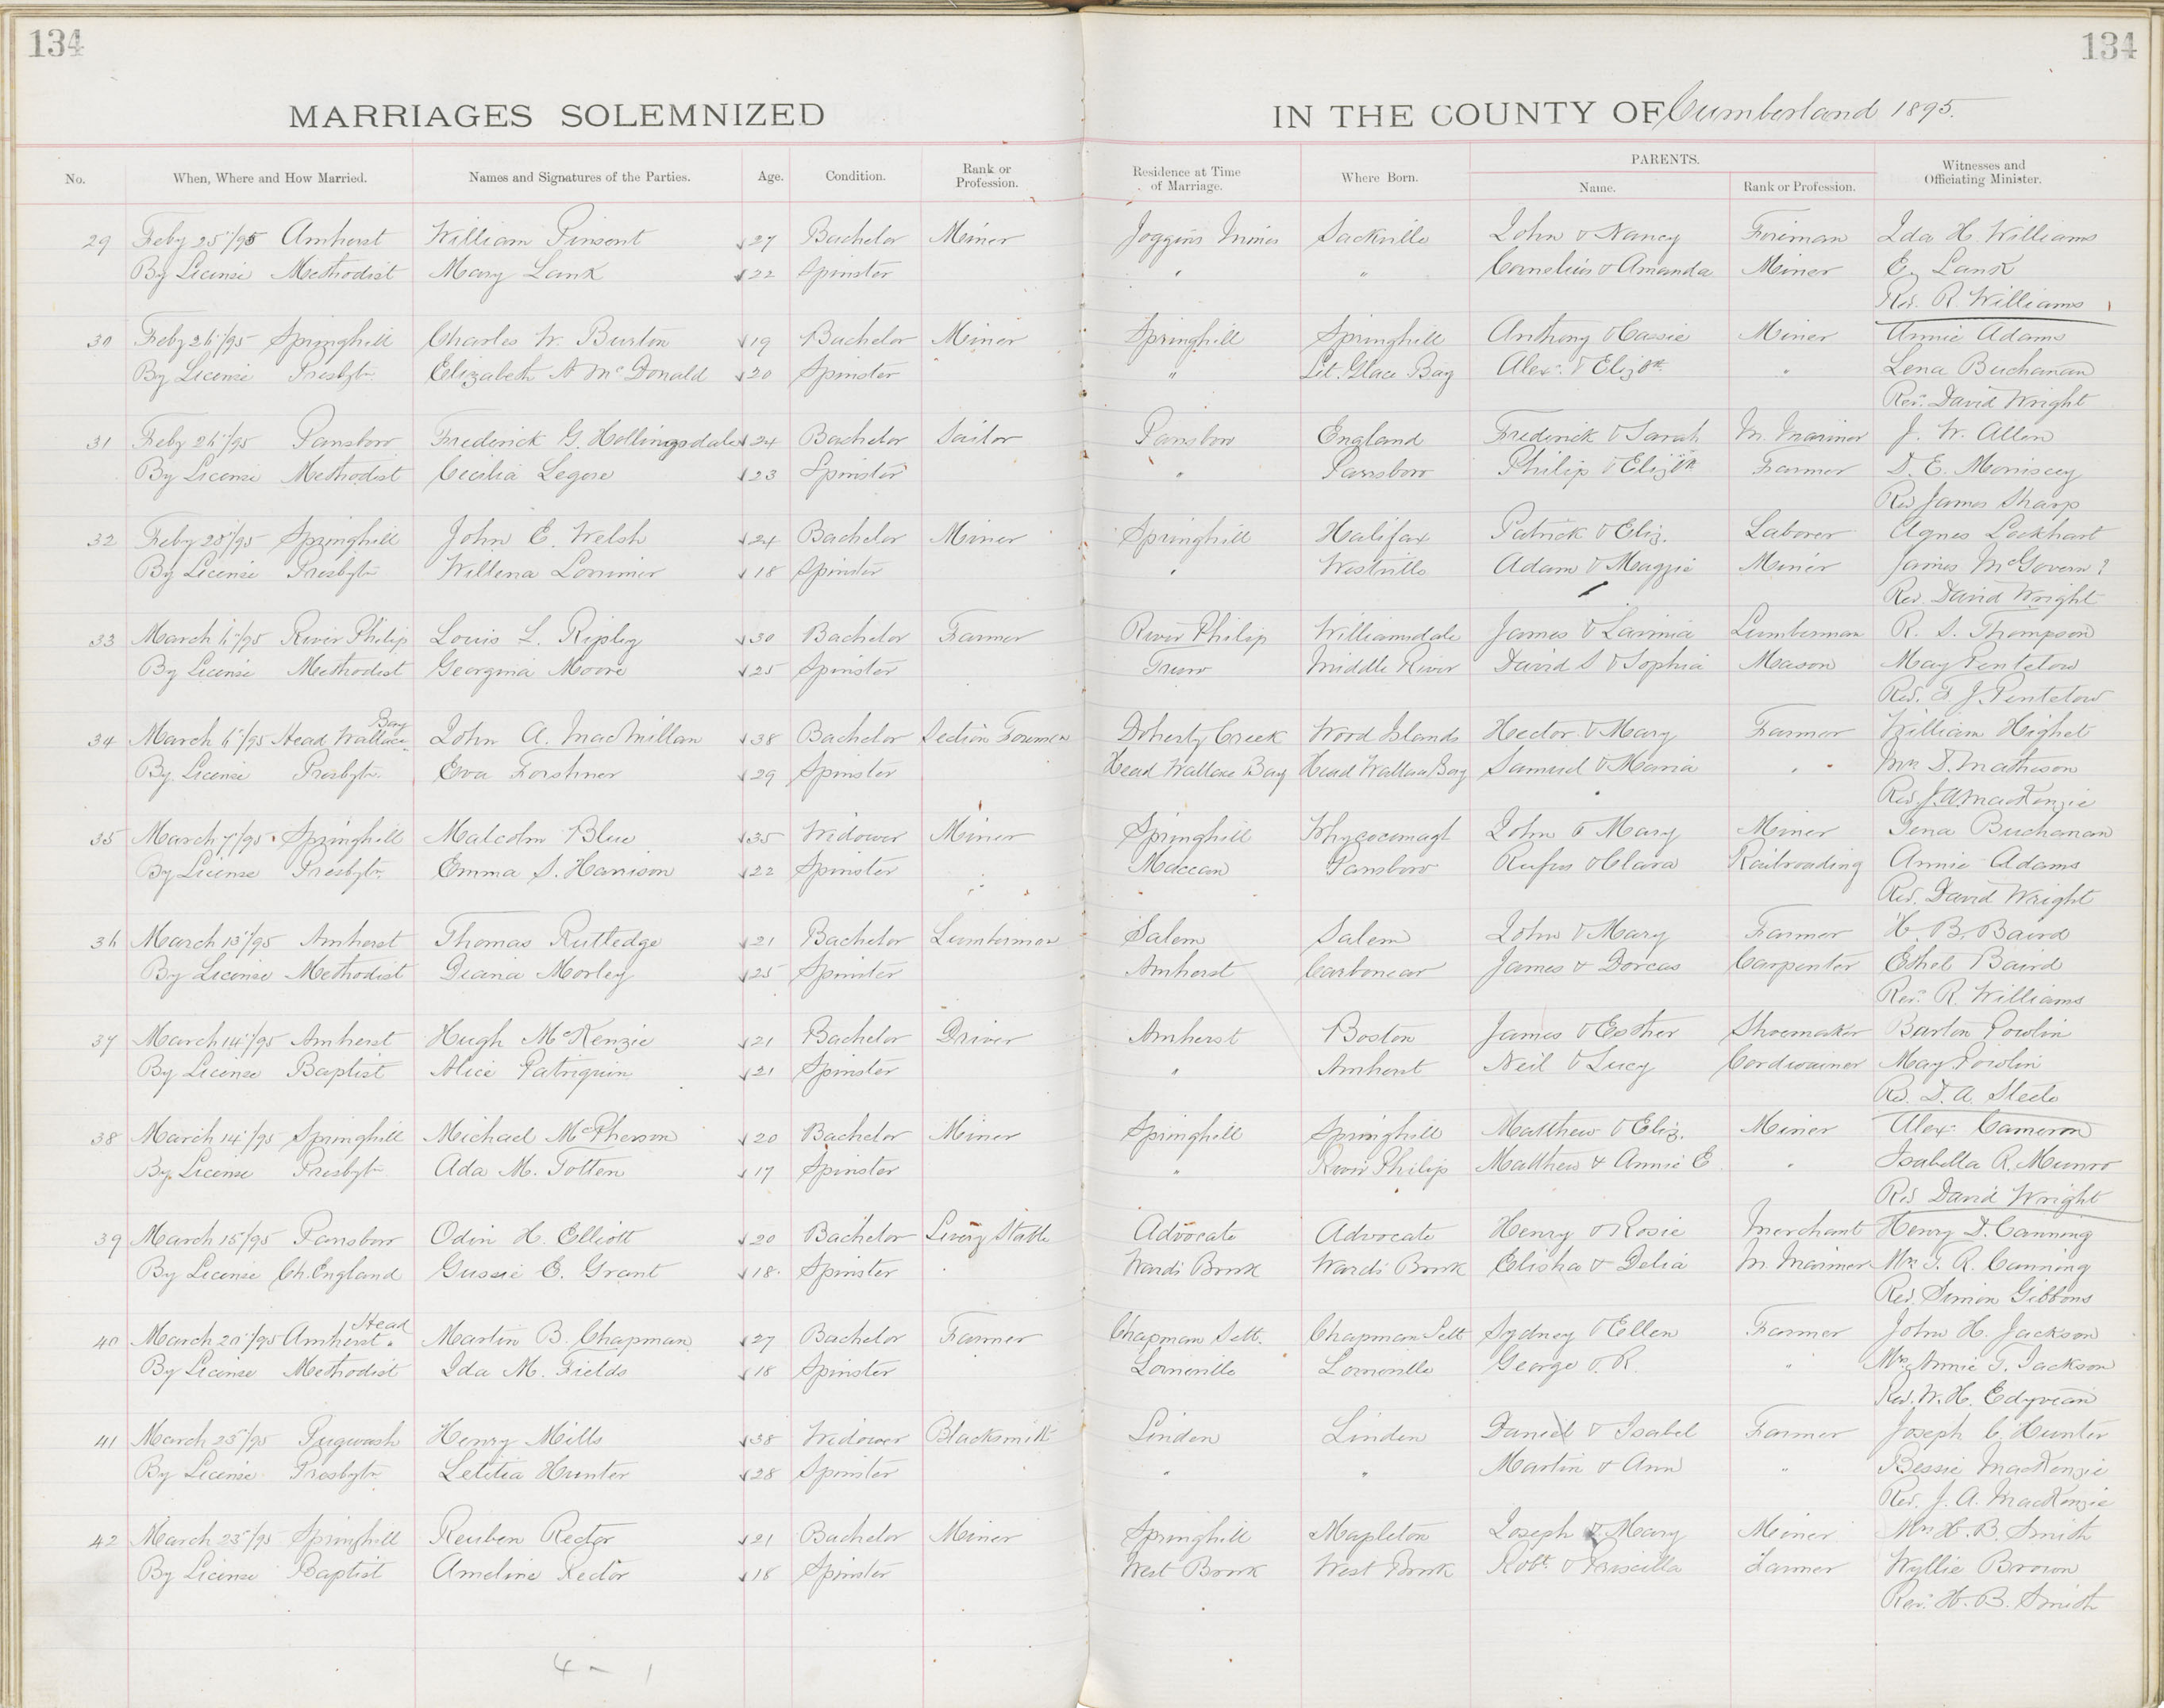 134
134
MARRIAGES SOLEMNIZED IN THE COUNTY OF Cumberland 1895.
No. When, Where and How Married. Names and Signatures of the Parties. Age. Condition. Rank or Profession. Residence at Time of Marriage. Where Born. PARENTS. Name. Rank or Profession. Witnesses and Officiating Minister.
29 Feby 25/95 Amherst William Pinsent 27 Bachelor Miner Joggins Mines Sackville John & Nancy Foreman Ida H. Williams
By License Methodist Mary Lank 22 Spinster " " Cornelius & Amanda Miner E. Lank
Rev. R. Williams
30 Feby 26/95 Springhill Charles W. Burton 19 Bachelor Miner Springhill Springhill Anthony & Cassie Miner Annie Adams
By License Presbytn Elizabeth A McDonald 20 Spinster " Lit. Glace Bay Alexr. & Elizth " Lena Buchanan
Rev. David Wright
31 Feby 26/95 Parrsboro Frederick G. Hollingsdale 24 Bachelor Sailor Parrsboro England Frederick & Sarah M. Mariner J. W. Allen
By License Methodist Cecilia Legere 23 Spinster " Parrsboro Philip & Elizth Farmer D. E. Morrissey
Rev James Sharp
32 Feby 28/95 Springhill John E. Welsh 24 Bachelor Miner Springhill Halifax Patrick & Eliz. Laborer Agnes Lockhart
By License Presbytn Willena Lorrimer 18 Spinster " Westville Adam & Maggie Miner James McGovern ?
Rev. David Wright
33 March 6/95 River Philip Louis L. Ripley 30 Bachelor Farmer River Philip Williamsdale James & Lavinia Lumberman R. S. Thompson
By License Methodist Georgina Moore 25 Spinster Truro Middle River David S & Sophia Mason May Pentelow
Rev. J. Pentelow
34 March 6/95 Head Wallace Bay John A. MacMillan 38 Bachelor Section Foreman Doherty Creek Wood Islands Hector & Mary Farmer William Highet
By License Presbytn. Eva Forshner 29 Spinster Head Wallace Bay Head Wallace Bay Samuel & Maria " Mrs D. Matheson
Rev. J. A. MacKenzie
35 March 7/95 Springhill Malcolm Blue 35 Widower Miner Springhill Whycocomagh John & Mary Miner Lena Buchanan
By License Presbytn. Emma S. Harrison 22 Spinster Maccan Parrsboro Rufus & Clara Railroading Annie Adams
Rev. David Wright
36 March 13/95 Amherst Thomas Rutledge 21 Bachelor Lumberman Salem Salem John & Mary Farmer H. B. Baird
By License Methodist Diana Morley 25 Spinster Amherst Carbonear James & Dorcas Carpenter Ethel Baird
Rev. R. Williams
37 March 14/95 Amherst Hugh McKenzie 21 Bachelor Driver Amherst Boston James & Esther Shoemaker Burton Powlin
By License Baptist Alice Patriquin 21 Spinster " Amherst Neil & Lucy Cordwainer May Powlin
Rev. D. A. Steele
38 March 14/95 Springhill Michael McPherson 20 Bachelor Miner Springhill Springhill Matthew & Eliz. Miner Alexr Cameron
By License Presbytn Ada M. Totten 17 Spinster " River Philip Matthew & Annie E " Isabella R. Munro
Rev David Wright
39 March 15/95 Parrsboro Odin H. Elliott 20 Bachelor Livery Stable Advocate Advocate Henry & Rosie Merchant Henry D. Canning
By License Ch. England Gussie E. Grant 18 Spinster Wards Brook Wards Brook Elisha & Delia M. Mariner Mrs T. R. Canning
Rev. Simon Gibbons
40 March 20/95 Amherst Head Martin B. Chapman 27 Bachelor Farmer Chapman Sett. Chapman Sett Sydney & Ellen Farmer John H. Jackson
By License Methodist Ida M. Fields 18 Spinster Lorneville Lorneville George & R. " Mrs Annie T. Jackson
Rev. W. H. Edyvean
41 March 23/95 Pugwash Henry Mills 38 Widower Blacksmith Linden Linden Daniel & Isabel Farmer Joseph C. Hunter
By License Presbytn Letitia Hunter 28 Spinster " " Martin & Ann " Bessie MacKenzie
Rev. J. A. MacKenzie
42 March 23/95 Springhill Reuben Rector 21 Bachelor Miner Springhill Mapleton Joseph & Mary Miner Mrs H. B. Smith
By License Baptist Ameline Rector 18 Spinster West Brook West Brook Robt & Priscilla Farmer Wyllie Brown
Rev. H. B. Smith
4 - 1